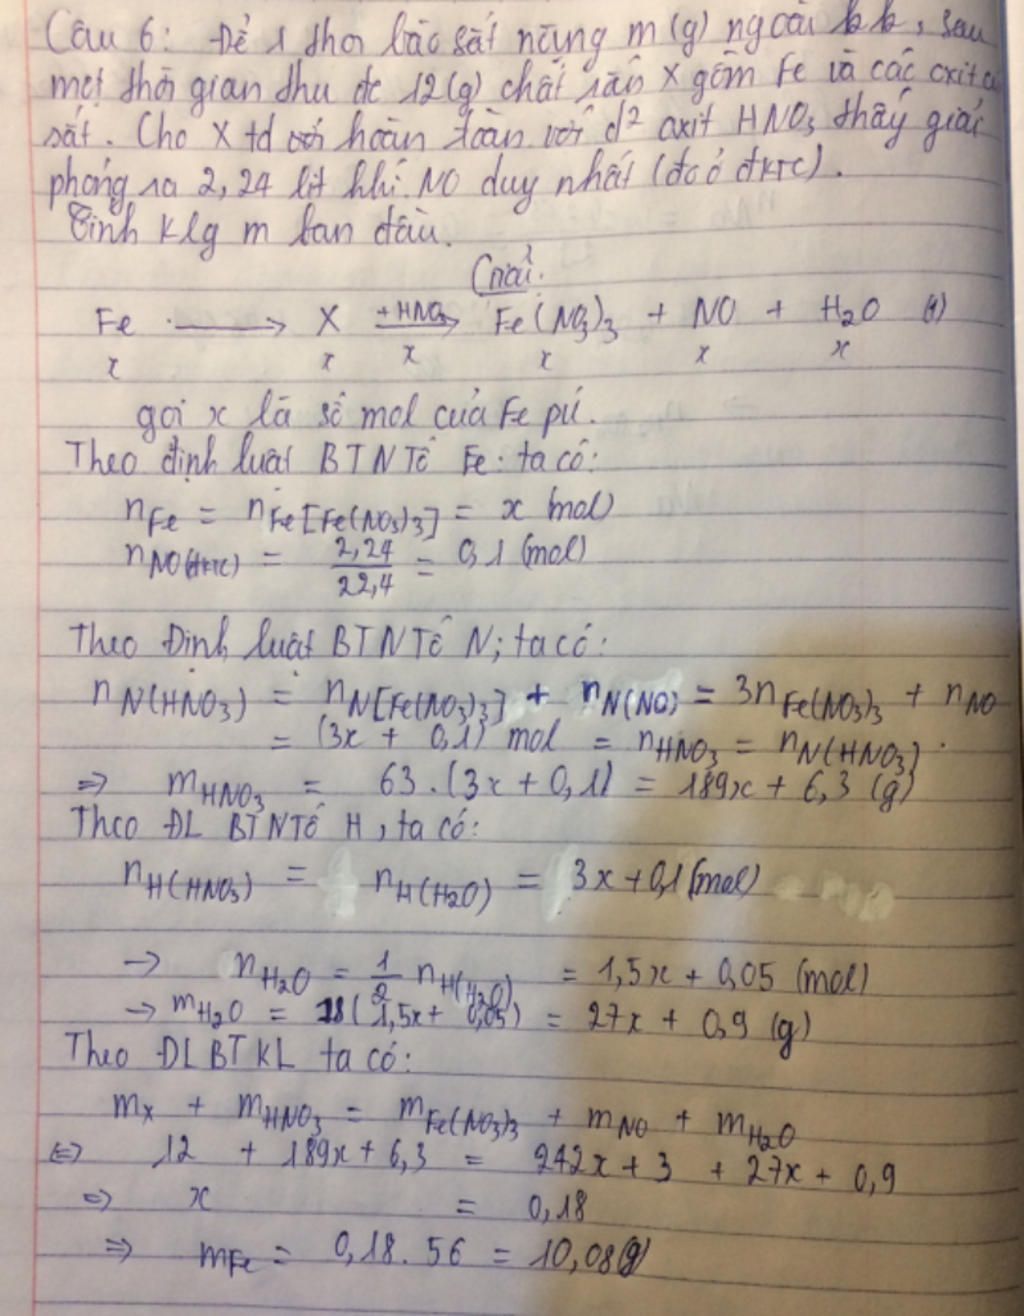 Câu 6: Để 1 thỏi sắt nặng m (g) ngoài kk, sau
một thời gian thu đc 12(g) chất rắn X gồm Fe và các oxit
sắt. Cho X td với hoàn toàn với d² axit HNO₃ thấy giải
phóng ra 2,24 lit khí NO duy nhất (đo ở đktc).
Tính klg m ban đầu.
Giải.
Fe ⟶ X +HNO₃⟶ Fe(NO₃)₃ + NO + H₂O (1)
x x x x x x
gọi x là số mol của Fe pứ.
Theo định luật BTNTố Fe ta có:
nFe = nFe[Fe(NO₃)₃] = x (mol)
nNO(đktc) = 2,24/22,4 = 0,1 (mol)
Theo Định luật BTNTố N; ta có:
nN(HNO₃) = nN[Fe(NO₃)₃] + nN(NO) = 3nFe(NO₃)₃ + nNO
= (3x + 0,1) mol = nHNO₃ = nN(HNO₃).
⇒ mHNO₃ = 63.(3x + 0,1) = 189x + 6,3 (g)
Theo ĐL BTNTố H, ta có:
nH(HNO₃) = nH(H₂O) = 3x + 0,1 (mol)
→ nH₂O = 1/2 nH(H₂O) = 1,5x + 0,05 (mol)
→ mH₂O = 18(1,5x + 0,05) = 27x + 0,9 (g)
Theo ĐLBTKL ta có:
mX + mHNO₃ = mFe(NO₃)₃ + mNO + mH₂O
⇔ 12 + 189x + 6,3 = 242x + 3 + 27x + 0,9
⇒ x = 0,18
⇒ mFe = 0,18.56 = 10,08(g)